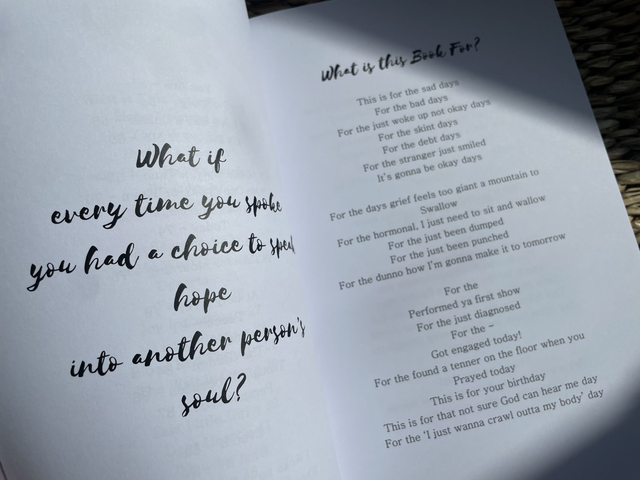 What if
every time you spoke
you had a choice to speak
hope
into another person's
soul?
What is this Book For?
This is for the sad days
For the bad days
For the just woke up not okay days
For the skint days
For the debt days
For the stranger just smiled
It's gonna be okay days
For the days grief feels too giant a mountain to
Swallow
For the hormonal, I just need to sit and wallow
For the just been dumped
For the just been punched
For the dunno how I'm gonna make it to tomorrow
For the
Performed ya first show
For the just diagnosed
For the –
Got engaged today!
For the found a tenner on the floor when you
Prayed today
This is for your birthday
This is for that not sure God can hear me day
For the 'I just wanna crawl outta my body' day